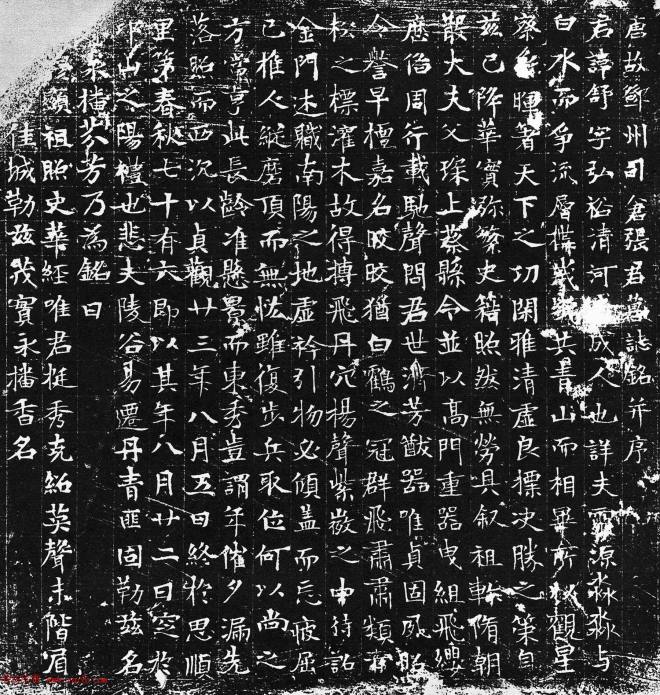 唐故鄧州司倉張君墓誌銘并序
君諱舒字弘裕清河人也詳夫靈源淼淼与
白水而爭流層構共青山而相畢所以觀星
察暉著天下之切閑雅清虛良摽決勝之策自
茲已降華實弥繁史籍照然無勞具叙祖軌脩朝
散大夫父琛上蔡縣令並以高門重器曳組飛纓
歷佁周行載馳聲問君世濟芳猷器唯貞固夙昭
令譽早擅嘉名皎皎猶白鶴之冠群飛肅肅類
松之標濯木故得摶飛丹穴楊聲紫嶷之中待詔
金門述職南陽之地虛衿引物必傾盖而忘疲屈
己推人縱磨頂而無悋雖復步兵取位何以尚之
方當亨此長齡准懸景而東秀豈謂年催夕漏先
落照而西沉以貞觀廿三年八月五日終於思順
里第春秋七十有六即以其年八月廿二日窆於
邙山之陽禮也悲夫陵谷易遷丹青匪固勒茲名
永播芬芳乃為銘曰
祖照史華經唯君挺秀克紹英聲未階眉
佳城勒茲茂實永播香名